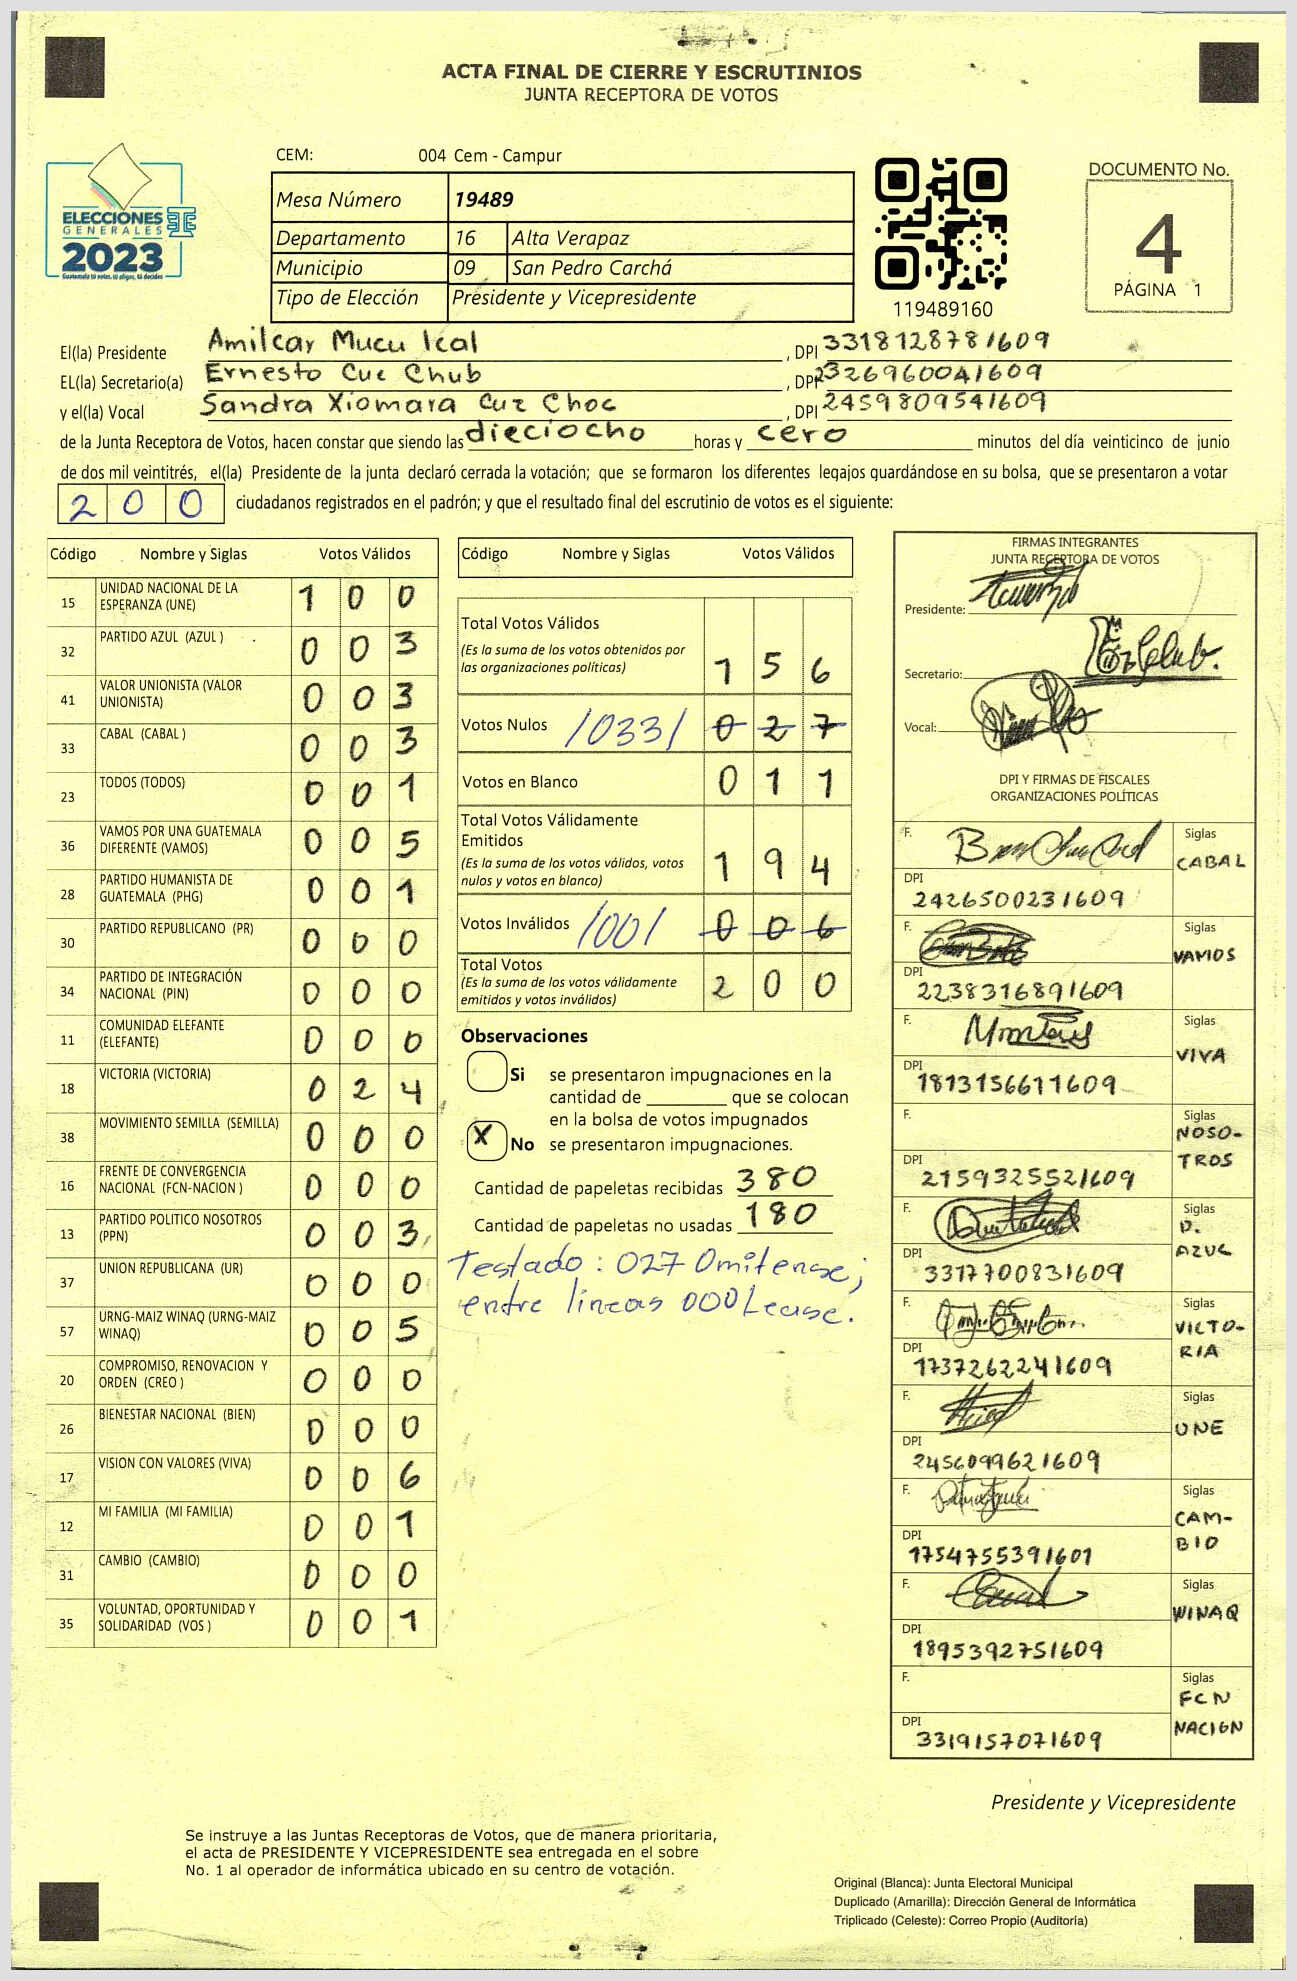 ACTA FINAL DE CIERRE Y ESCRUTINIOS
JUNTA RECEPTORA DE VOTOS
ELECCIONES
GENERALES
2023
Guatemala tú votas, tú eliges, tú decides
CEM: 004 Cem - Campur
Mesa Número 19489
Departamento 16 Alta Verapaz
Municipio 09 San Pedro Carchá
Tipo de Elección Presidente y Vicepresidente
119489160
DOCUMENTO No.
4
PÁGINA 1
El(la) Presidente Amilcar Mucu Ical , DPI 3318128781609
EL(la) Secretario(a) Ernesto Cuc Chub , DPI 2326960041609
y el(la) Vocal Sandra Xiomara Cuz Choc , DPI 2459809541609
de la Junta Receptora de Votos, hacen constar que siendo las dieciocho horas y cero minutos del día veinticinco de junio
de dos mil veintitrés, el(la) Presidente de la junta declaró cerrada la votación; que se formaron los diferentes legajos guardándose en su bolsa, que se presentaron a votar
200 ciudadanos registrados en el padrón; y que el resultado final del escrutinio de votos es el siguiente:
Código Nombre y Siglas Votos Válidos
15 UNIDAD NACIONAL DE LA ESPERANZA (UNE) 1 0 0
32 PARTIDO AZUL (AZUL ) 0 0 3
41 VALOR UNIONISTA (VALOR UNIONISTA) 0 0 3
33 CABAL (CABAL ) 0 0 3
23 TODOS (TODOS) 0 0 1
36 VAMOS POR UNA GUATEMALA DIFERENTE (VAMOS) 0 0 5
28 PARTIDO HUMANISTA DE GUATEMALA (PHG) 0 0 1
30 PARTIDO REPUBLICANO (PR) 0 0 0
34 PARTIDO DE INTEGRACIÓN NACIONAL (PIN) 0 0 0
11 COMUNIDAD ELEFANTE (ELEFANTE) 0 0 0
18 VICTORIA (VICTORIA) 0 2 4
38 MOVIMIENTO SEMILLA (SEMILLA) 0 0 0
16 FRENTE DE CONVERGENCIA NACIONAL (FCN-NACION ) 0 0 0
13 PARTIDO POLITICO NOSOTROS (PPN) 0 0 3
37 UNION REPUBLICANA (UR) 0 0 0
57 URNG-MAIZ WINAQ (URNG-MAIZ WINAQ) 0 0 5
20 COMPROMISO, RENOVACION Y ORDEN (CREO ) 0 0 0
26 BIENESTAR NACIONAL (BIEN) 0 0 0
17 VISION CON VALORES (VIVA) 0 0 6
12 MI FAMILIA (MI FAMILIA) 0 0 1
31 CAMBIO (CAMBIO) 0 0 0
35 VOLUNTAD, OPORTUNIDAD Y SOLIDARIDAD (VOS ) 0 0 1
Código Nombre y Siglas Votos Válidos
Total Votos Válidos
(Es la suma de los votos obtenidos por las organizaciones políticas) 1 5 6
Votos Nulos /033/ 0 2 7
Votos en Blanco 0 1 1
Total Votos Válidamente Emitidos
(Es la suma de los votos válidos, votos nulos y votos en blanco) 1 9 4
Votos Inválidos /001/ 0 0 6
Total Votos
(Es la suma de los votos válidamente emitidos y votos inválidos) 2 0 0
Observaciones
Si se presentaron impugnaciones en la
cantidad de ________ que se colocan
en la bolsa de votos impugnados
X No se presentaron impugnaciones.
Cantidad de papeletas recibidas 380
Cantidad de papeletas no usadas 180
Testado : 027 Omitense;
entre lineas 000 Lease.
FIRMAS INTEGRANTES
JUNTA RECEPTORA DE VOTOS
Presidente:
Secretario:
Vocal:
DPI Y FIRMAS DE FISCALES
ORGANIZACIONES POLÍTICAS
F. Siglas CABAL
DPI 2426500231609
F. Siglas VAMOS
DPI 2238316891609
F. Siglas VIVA
DPI 1813156611609
F. Siglas NOSO-TROS
DPI 2159325521609
F. Siglas P. AZUL
DPI 3317700831609
F. Siglas VICTO-RIA
DPI 1737262241609
F. Siglas UNE
DPI 2456099621609
F. Siglas CAM-BIO
DPI 1754755391601
F. Siglas WINAQ
DPI 1895392751609
F. Siglas FCN NACION
DPI 3319157071609
Presidente y Vicepresidente
Se instruye a las Juntas Receptoras de Votos, que de manera prioritaria,
el acta de PRESIDENTE Y VICEPRESIDENTE sea entregada en el sobre
No. 1 al operador de informática ubicado en su centro de votación.
Original (Blanca): Junta Electoral Municipal
Duplicado (Amarilla): Dirección General de Informática
Triplicado (Celeste): Correo Propio (Auditoría)